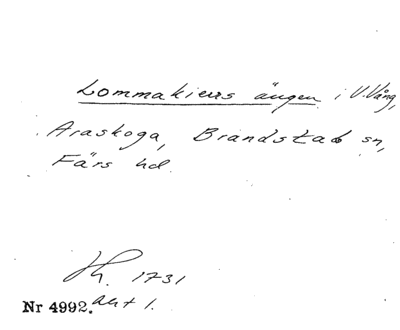 Lommakierrs ängen i V.Vång,
Araskoga, Brandstad sn,
Färs hd.
Lh. 1731
Nr 4992. akt 1.